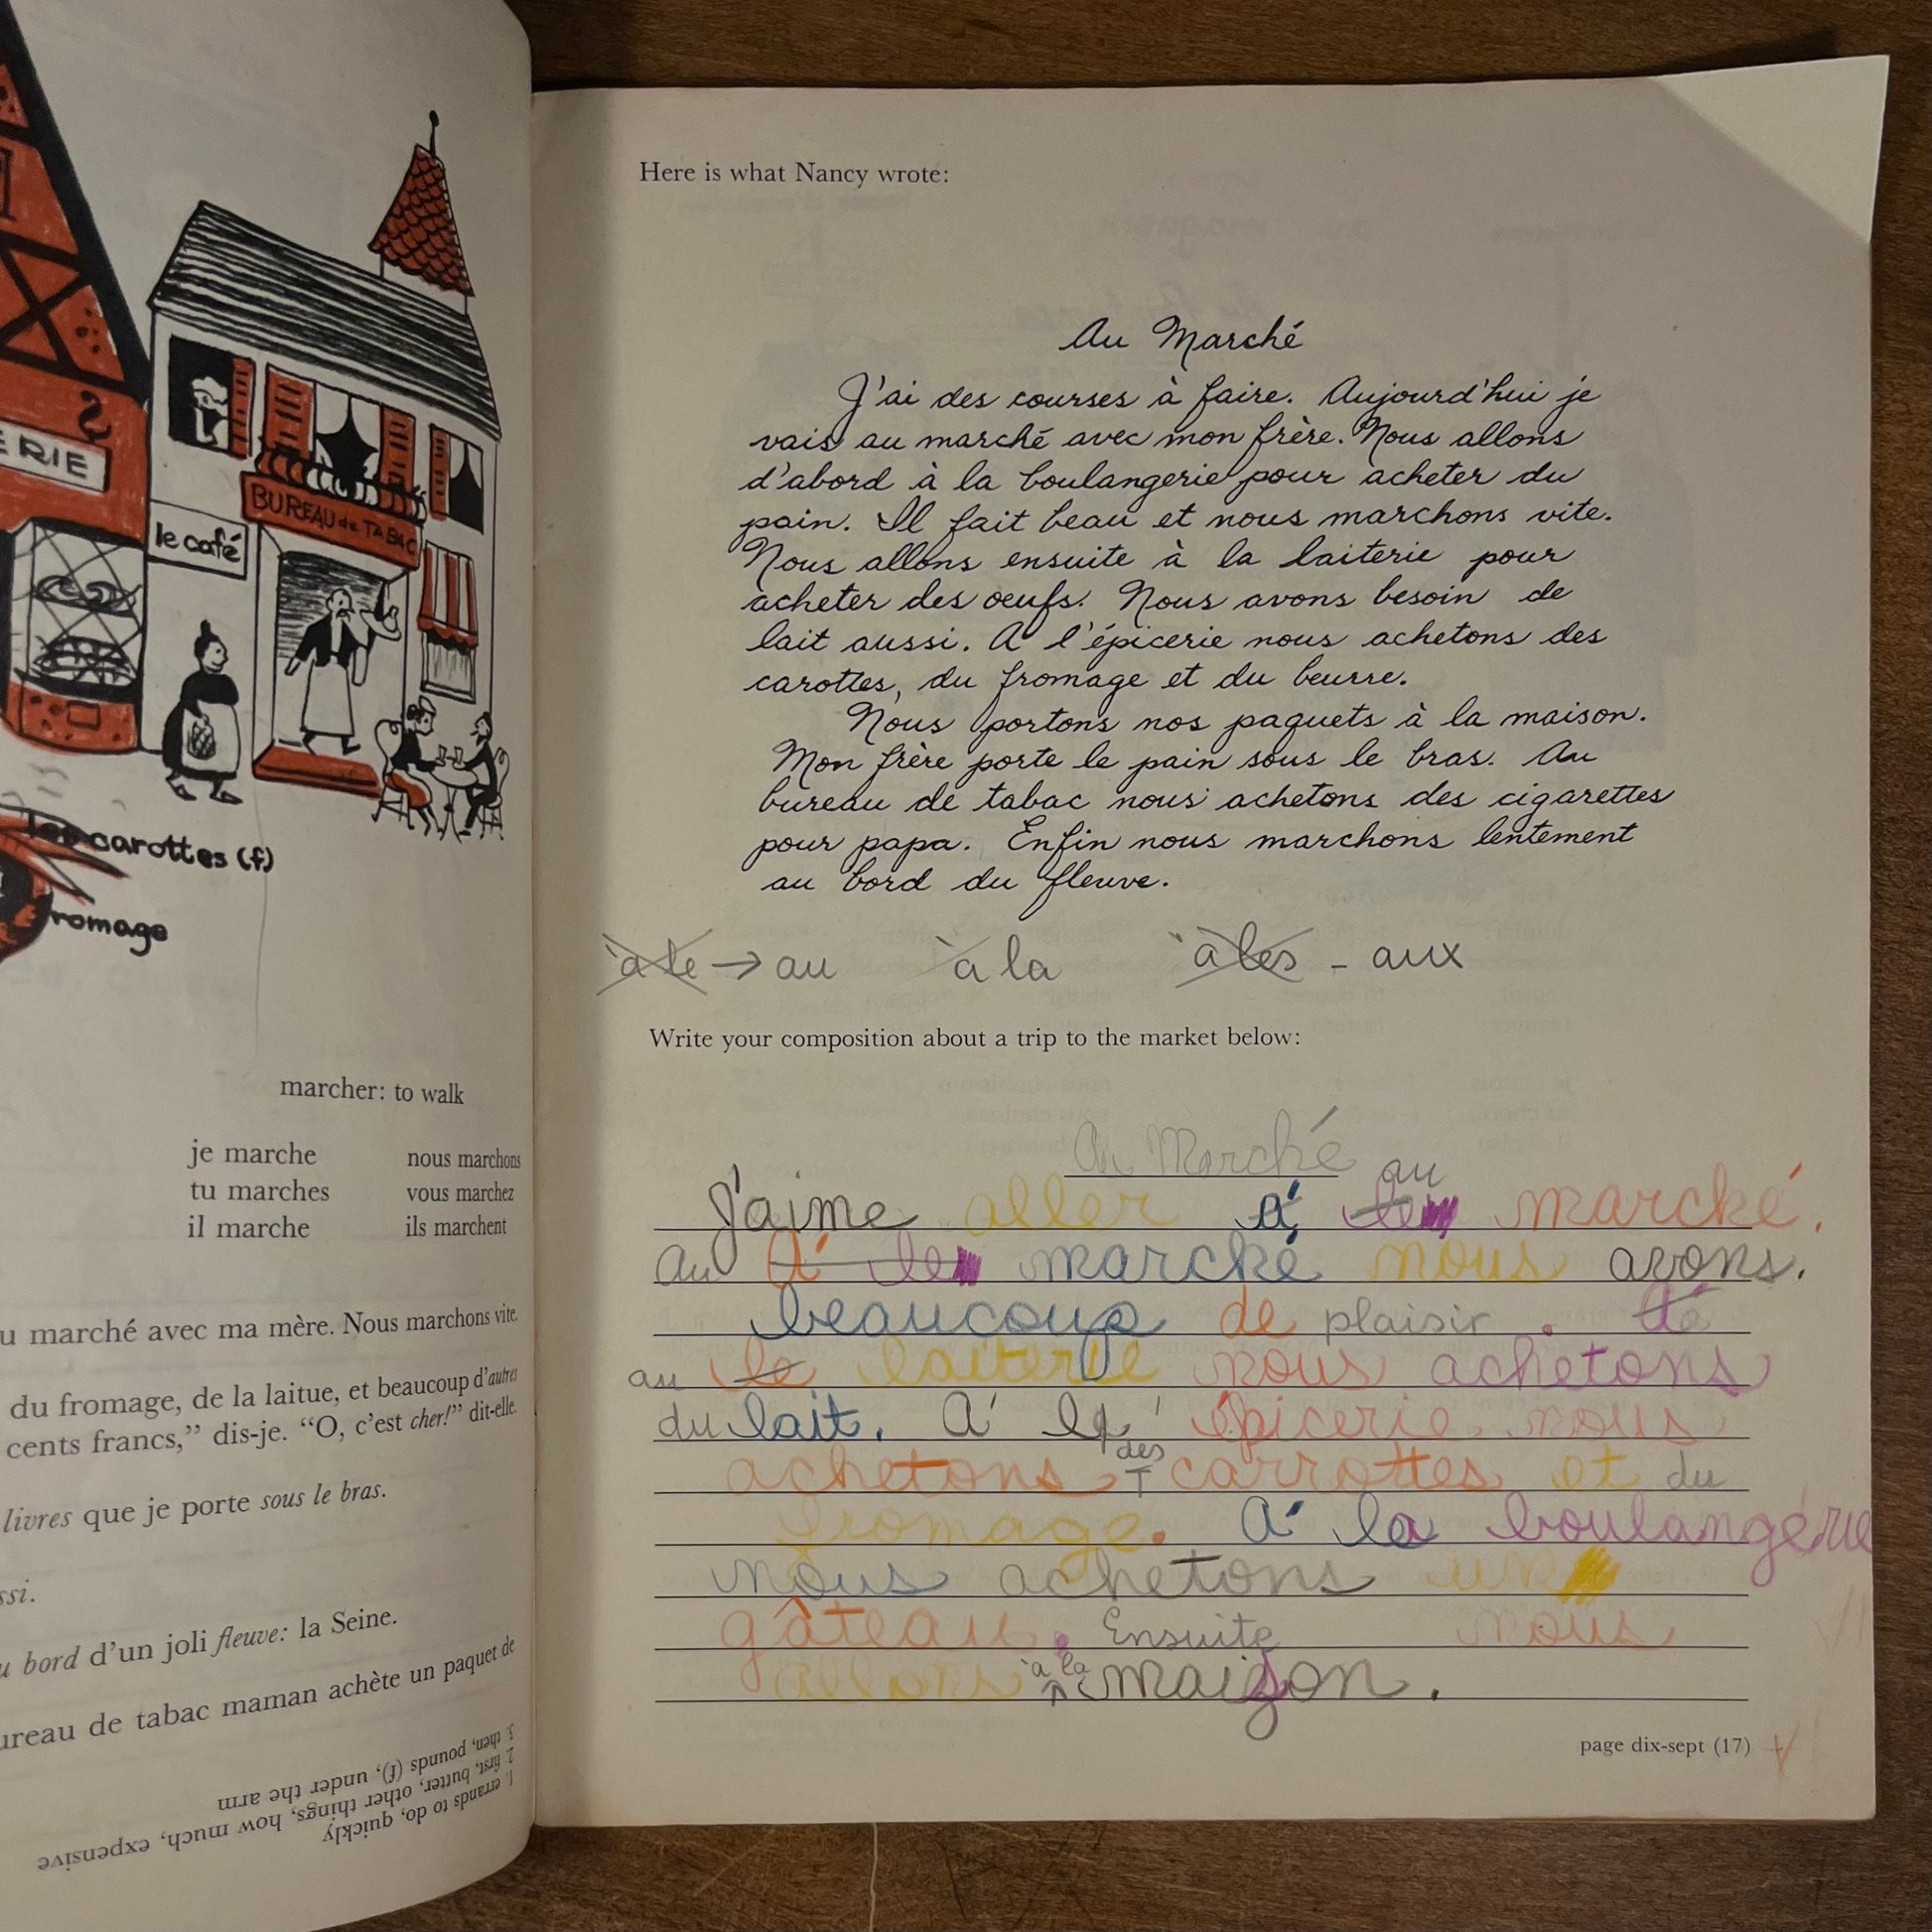 ERIE
BUREAU de TABAC
le café
les carottes (f)
romage
marcher: to walk
je marche nous marchons
tu marches vous marchez
il marche ils marchent
u marché avec ma mère. Nous marchons vite.
du fromage, de la laitue, et beaucoup d'autres
cents francs," dis-je. "O, c'est cher!" dit-elle.
livres que je porte sous le bras.
ssi.
u bord d'un joli fleuve: la Seine.
ureau de tabac maman achète un paquet de
1. errands to do, quickly
2. first, butter, other things, how much, expensive
3. then, pounds (f), under the arm
Here is what Nancy wrote:
Au Marché
J'ai des courses à faire. Aujourd'hui je
vais au marché avec mon frère. Nous allons
d'abord à la boulangerie pour acheter du
pain. Il fait beau et nous marchons vite.
Nous allons ensuite à la laiterie pour
acheter des oeufs. Nous avons besoin de
lait aussi. A l'épicerie nous achetons des
carottes, du fromage et du beurre.
Nous portons nos paquets à la maison.
Mon frère porte le pain sous le bras. Au
bureau de tabac nous achetons des cigarettes
pour papa. Enfin nous marchons lentement
au bord du fleuve.
à le → au à la à les - aux
Write your composition about a trip to the market below:
Au Marché
au
J'aime aller á le marché.
Au Á le marché nous avons.
beaucoup de plaisir.
au le laiterie nous achetons
du lait. Á l' épicerie nous
des
achetons carrottes et du
fromage. Á la boulangérie
nous achetons un
gâteau. Ensuite nous
allons à la maison.
page dix-sept (17)